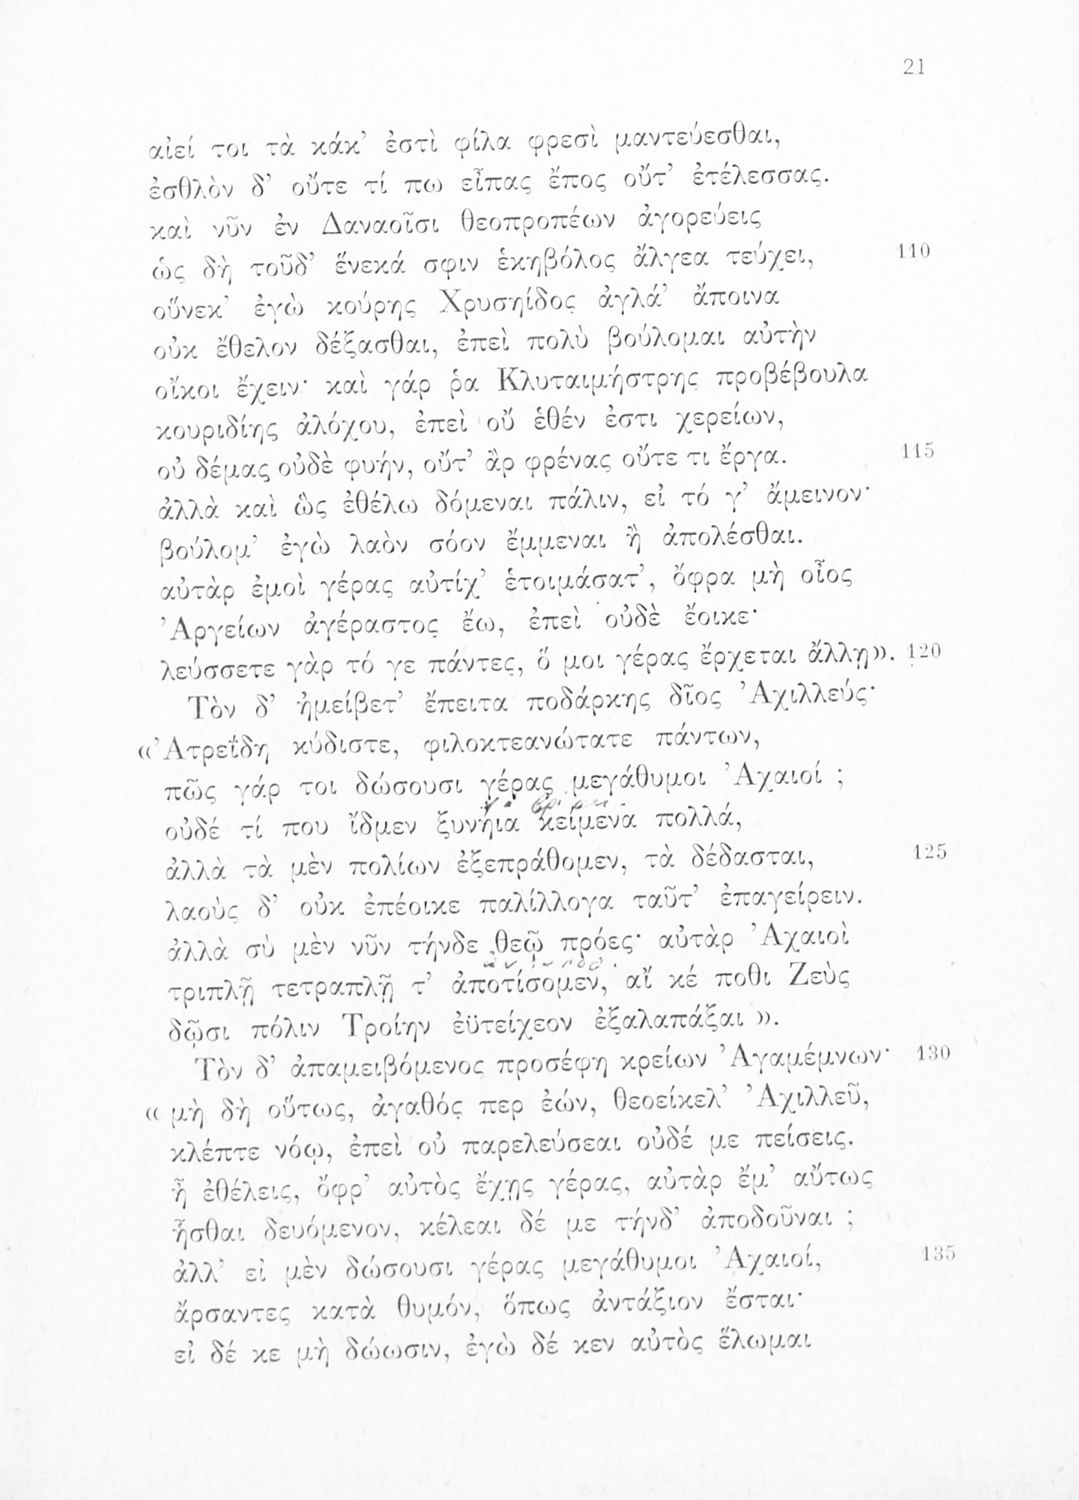 21
αἰεί τοι τὰ κάκ’ ἐστὶ φίλα φρεσὶ μαντεύεσθαι,
ἐσθλὸν δ’ οὔτε τί πω εἶπας ἔπος οὔτ’ ἐτέλεσσας.
καὶ νῦν ἐν Δαναοῖσι θεοπροπέων ἀγορεύεις
ὡς δὴ τοῦδ’ ἕνεκά σφιν ἑκηβόλος ἄλγεα τεύχει, 110
οὕνεκ’ ἐγὼ κούρης Χρυσηίδος ἀγλά’ ἄποινα
οὐκ ἔθελον δέξασθαι, ἐπεὶ πολὺ βούλομαι αὐτὴν
οἴκοι ἔχειν· καὶ γάρ ῥα Κλυταιμήστρης προβέβουλα
κουριδίης ἀλόχου, ἐπεὶ οὔ ἑθέν ἐστι χερείων,
οὐ δέμας οὐδὲ φυήν, οὔτ’ ἂρ φρένας οὔτε τι ἔργα. 115
ἀλλὰ καὶ ὣς ἐθέλω δόμεναι πάλιν, εἰ τό γ’ ἄμεινον·
βούλομ’ ἐγὼ λαὸν σόον ἔμμεναι ἢ ἀπολέσθαι.
αὐτὰρ ἐμοὶ γέρας αὐτίχ’ ἑτοιμάσατ’, ὄφρα μὴ οἶος
Ἀργείων ἀγέραστος ἔω, ἐπεὶ οὐδὲ ἔοικε·
λεύσσετε γὰρ τό γε πάντες, ὅ μοι γέρας ἔρχεται ἄλλῃ». 120
Τὸν δ’ ἠμείβετ’ ἔπειτα ποδάρκης δῖος Ἀχιλλεύς·
«Ἀτρεΐδη κύδιστε, φιλοκτεανώτατε πάντων,
πῶς γάρ τοι δώσουσι γέρας μεγάθυμοι Ἀχαιοί ;
οὐδέ τί που ἴδμεν ξυνήια κείμενα πολλά,
ἀλλὰ τὰ μὲν πολίων ἐξεπράθομεν, τὰ δέδασται, 125
λαοὺς δ’ οὐκ ἐπέοικε παλίλλογα ταῦτ’ ἐπαγείρειν.
ἀλλὰ σὺ μὲν νῦν τήνδε θεῷ πρόες· αὐτὰρ Ἀχαιοὶ
τριπλῇ τετραπλῇ τ’ ἀποτίσομεν, αἴ κέ ποθι Ζεὺς
δῷσι πόλιν Τροίην ἐϋτείχεον ἐξαλαπάξαι ».
Τὸν δ’ ἀπαμειβόμενος προσέφη κρείων Ἀγαμέμνων· 130
« μὴ δὴ οὕτως, ἀγαθός περ ἐών, θεοείκελ’ Ἀχιλλεῦ,
κλέπτε νόῳ, ἐπεὶ οὐ παρελεύσεαι οὐδέ με πείσεις.
ἦ ἐθέλεις, ὄφρ’ αὐτὸς ἔχῃς γέρας, αὐτὰρ ἔμ’ αὔτως
ἧσθαι δευόμενον, κέλεαι δέ με τήνδ’ ἀποδοῦναι ;
ἀλλ’ εἰ μὲν δώσουσι γέρας μεγάθυμοι Ἀχαιοί, 135
ἄρσαντες κατὰ θυμόν, ὅπως ἀντάξιον ἔσται·
εἰ δέ κε μὴ δώωσιν, ἐγὼ δέ κεν αὐτὸς ἕλωμαι